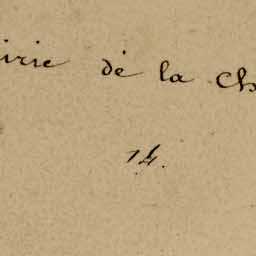 irie de la Ch
14.